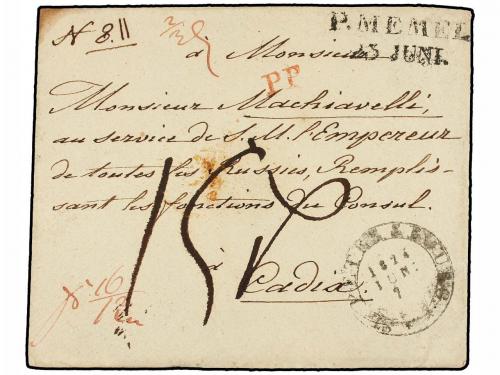 N 8.||
à Monsieur
P. MEMEL
23 JUNI.
PP
Monsieur Machiavelli,
au service de S. M. l'Empereur
de toutes les Russies, Remplis-
sant les fonctions du Consul.
à
Cadix.
1874
JUN.
7
16